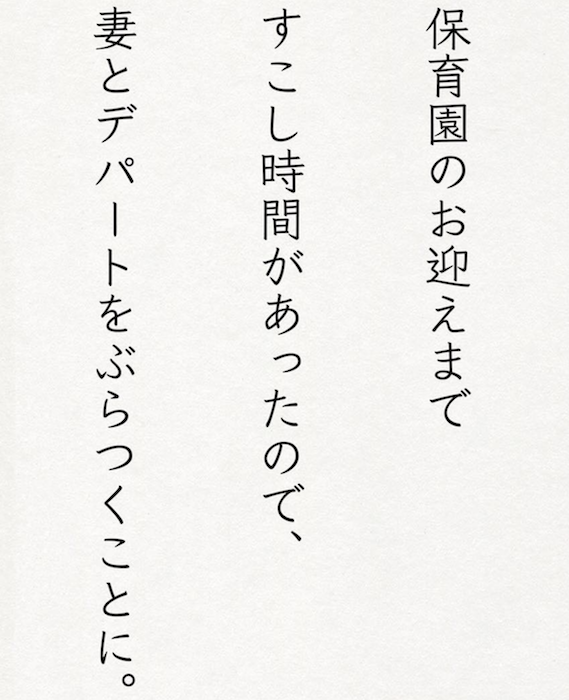 保育園のお迎えまで
すこし時間があったので、
妻とデパートをぶらつくことに。